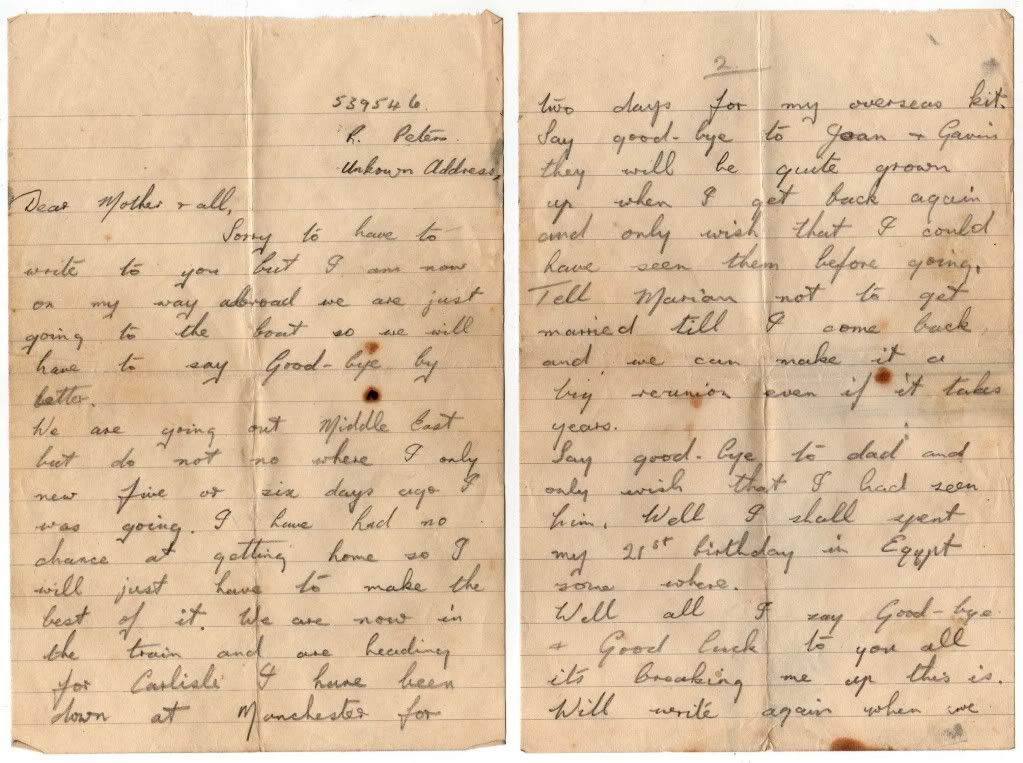 539546.
R. Peters.
Unkown Address,
Dear Mother & all,
Sorry to have to
write to you but I am now
on my way abroad we are just
going to the boat so we will
have to say Good-bye by
letter.
We are going out Middle East
but do not no where I only
new five or six days ago I
was going. I have had no
chance at getting home so I
will just have to make the
best of it. We are now in
the train and are heading
for Carlisle I have been
down at Manchester for
2.
two days for my overseas kit.
Say good-bye to Joan & Gavin
they will be quite grown
up when I get back again
and only wish that I could
have seen them before going.
Tell Marian not to get
married till I come back,
and we can make it a
big reunion even if it takes
years.
Say good-bye to dad and
only wish that I had seen
him. Well I shall spent
my 21st birthday in Egypt
some where.
Well all I say Good-bye
+ Good luck to you all
its breaking me up this is.
Will write again when we